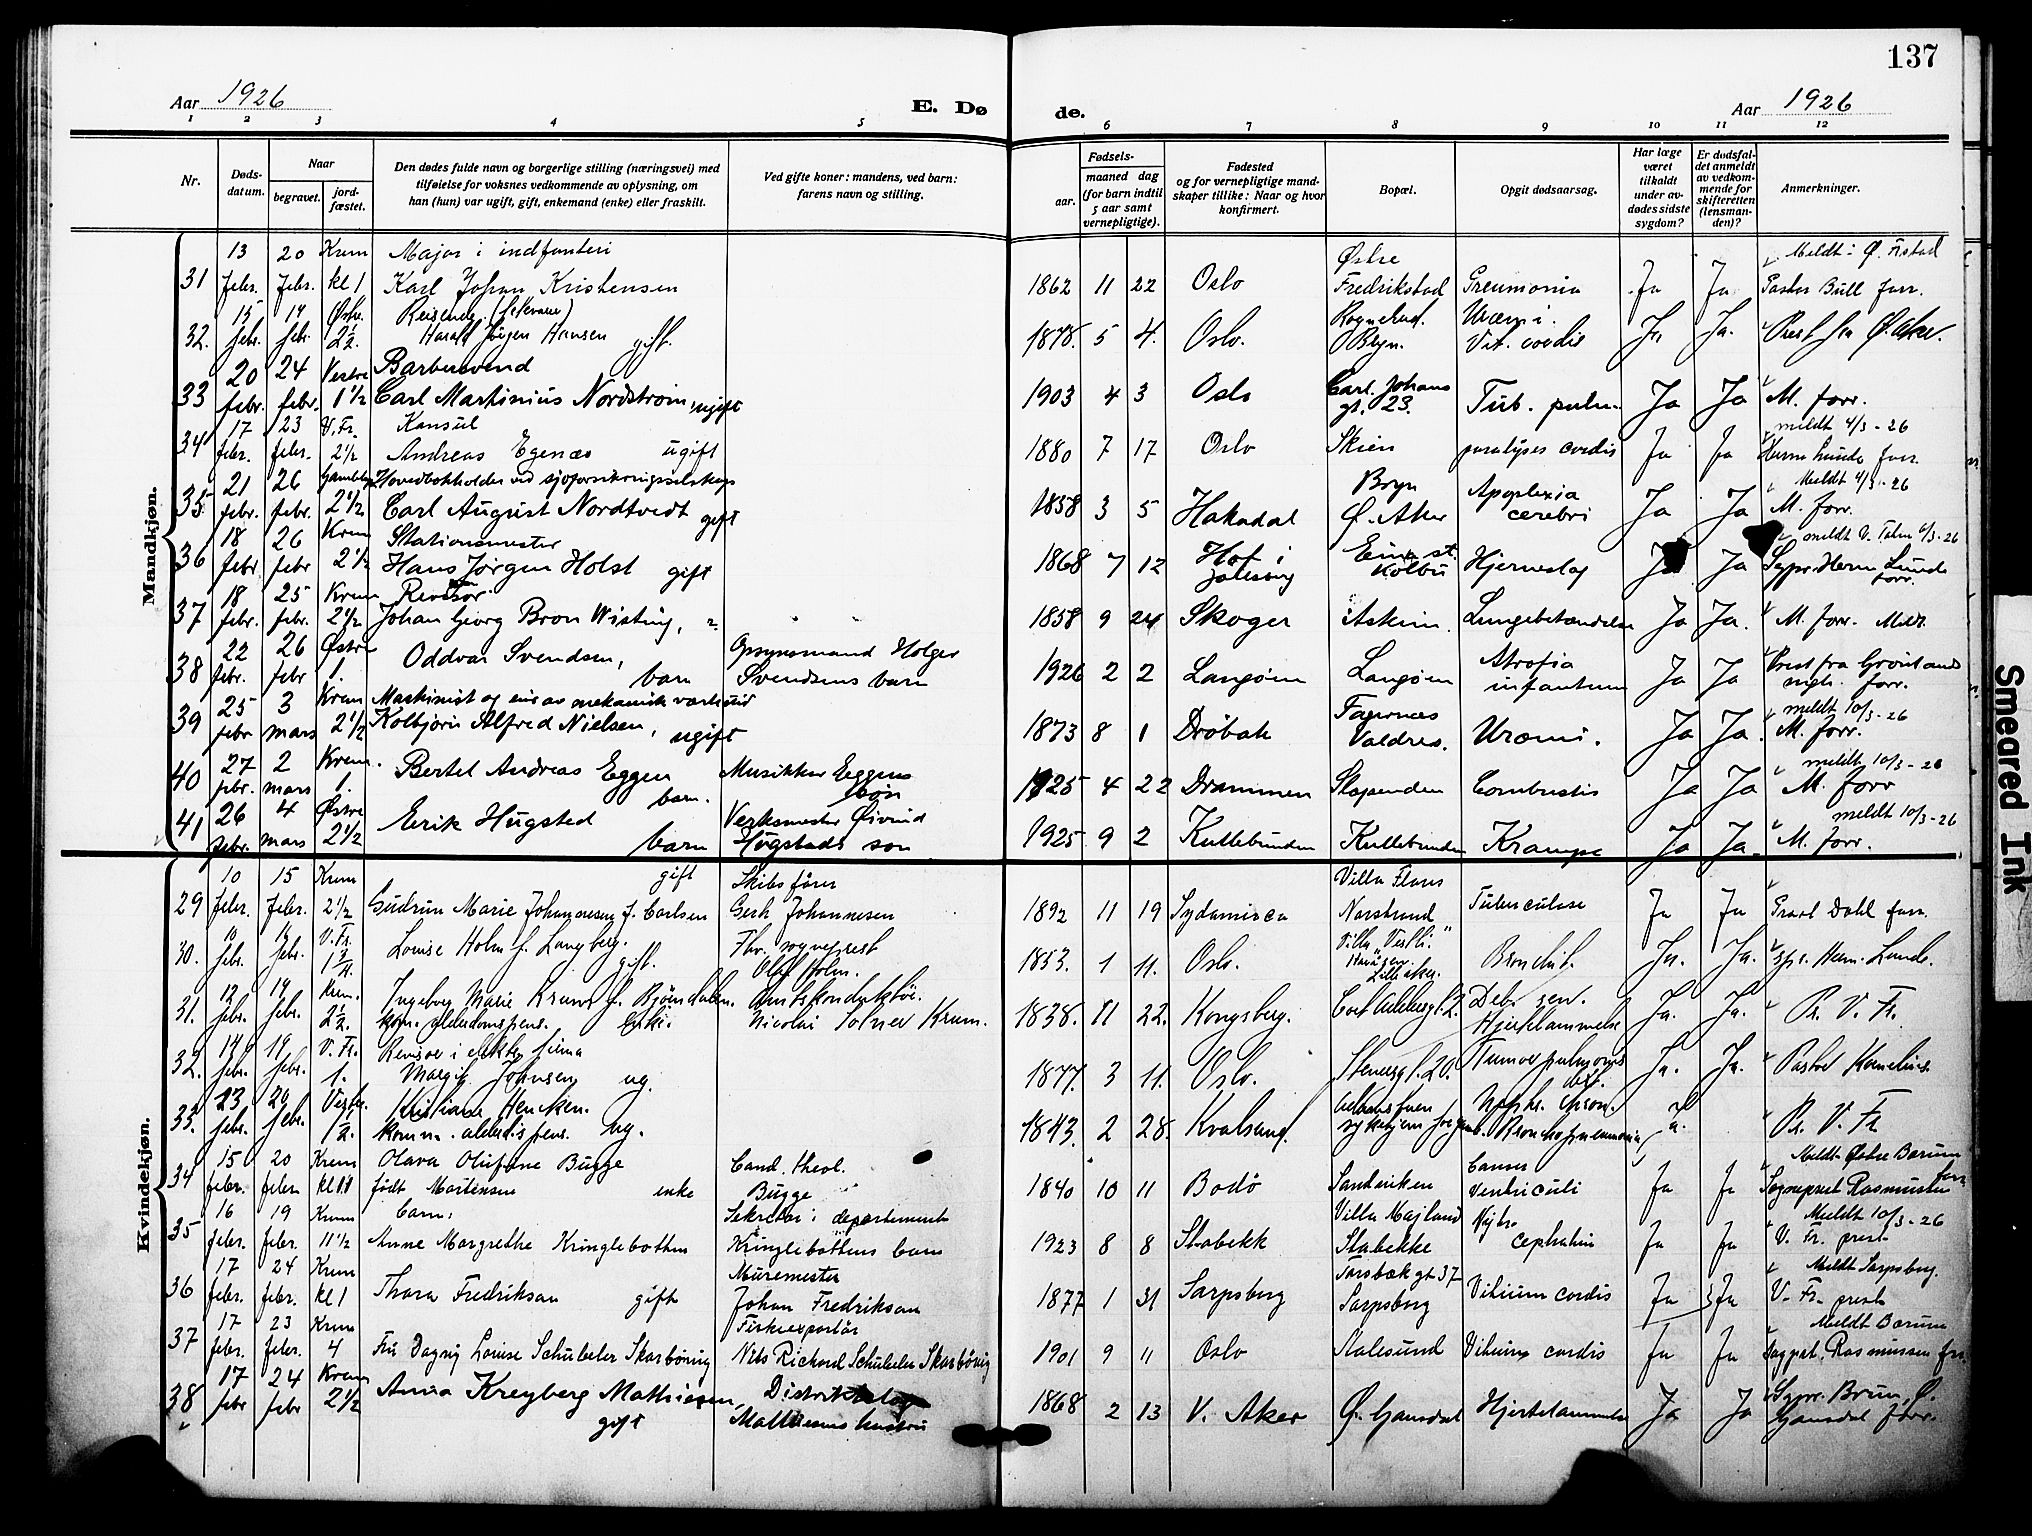 137
Aar 1926
E. Dø
de.
Aar 1926
1 2 3 4 5 6 7 8 9 10 11 12
Nr.
Døds-
datum.
Naar
begravet.
jord-
fæstet.
Den dødes fulde navn og borgerlige stilling (næringsvei) med
tilføielse for voksnes vedkommende av oplysning, om
han (hun) var ugift, gift, enkemand (enke) eller fraskilt.
Ved gifte koner: mandens, ved barn:
farens navn og stilling.
Fødsels-
aar.
maaned dag
(for barn indtil
5 aar samt
vernepligtige).
Fødested
og for vernepligtige mand-
skaper tillike: Naar og hvor
konfirmert.
Bopæl.
Opgit dødsaarsag.
Har læge
været
tilkaldt
under av-
dødes sidste
sygdom?
Er dødsfal-
det anmeldt
av vedkom-
mende for
skifteretten
(lensman-
den)?
Anmerkninger.
Mandkjøn.
13 20 Krem Major i indfanteri Østre Meldt Ø. Fr.stad
31 febr. febr. kl 1 Karl Johan Kristensen 1862 11 22 Oslo Fredrikstad Ja Ja Pastor Bull forr.
15 19 Østre Reisende
32. febr. febr. 2½ Harald Jørgen Hansen gift. 1878. 5 4. Oslo. Bryn. Vit. cordis Ja Ja. Prest fra Ø. Aker.
20 24 Vestre Barbersvend Carl Johans
33 febr. febr. 1½ Carl Martinius Nordstrøm, ugift 1903 4 3 Oslo gt. 23. Tub. pulm. Ja Ja M. forr.
17 23 V. Fr. Konsul meldt 4/3-26
34 febr. febr. 2½ Andreas Egenæs ugift 1880 7 17 Oslo Skien paralyses cordis Ja Ja Herm Lunde forr.
21 26 Gamleby Hovedbokholder ved sjøforsikringsselskap Bryn Apoplexia Meldt 4/3-26
35 febr. febr. 2½ Carl August Nordtvedt gift 1858 3 5 Hakadal Ø. Aker cerebri Ja Ja M. forr.
18 26 Krem Stationsmester Eina st. meldt V. Toten 6/3-26
36 febr febr 2½ Hans Jørgen Holst gift 1868 7 12 Hof i Kolbu Hjerneslag Ja Ja Sgpr. Herm Lunde forr.
18 25 Krem Revisor
37 febr. febr. 2½ Johan Georg Bron Wisting, 1858 9 24 Skoger Askim. Lungebetændelse Ja Ja. M. forr. Meldt
22 26 Østre Oddvar Svendsen, Opsynsmand Holger Atrofia Prest fra Grønlands
38 febr. febr 1. barn Svendsens barn 1926 2 2 Langøen Langøen infantum Ja Ja mgh. forr.
25 3 Krem Maskinist og eier av mekanisk verksted Fagernes meldt 10/3-26
39 febr mars 2½ Kolbjørn Alfred Nielsen, ugift 1873 8 1 Drøbak Valdres. Uræmi. Ja Ja. M. forr.
27 2 Krem. Bertel Andreas Eggen Musikker Eggens meldt 10/3-26
40 febr. mars 1. barn. søn 1925 4 22 Drammen Slependen Combustio Ja Ja M. forr
26 4 Østre Eirik Hugsted Verksmester Øivind meldt 10/3-26
41 febr. mars 2½ barn Høgstads son 1925 9 2 Kullebunden Kullebunden Krampe Ja Ja. M. forr.
Kvindekjøn.
10 15 Krem gift Skibsfører Villa
29 febr. febr. 2½ Gudrun Marie Johannesen f. Carlsen Gerh Johannesen 1892 11 19 Sydamerica Norstrand Tuberculose Ja Ja Dahl forr.
V. Fr. Louise Holm f. Langberg. Fhv. sogneprest Villa "Vestli."
30. febr. febr. 1¾ gift. Olaf Holm. 1853. 1 11. Oslo. Lilleaker. Bronchit. Ja. Ja. spr. Herm. Lunde.
12 19 Krem. Ingeborg Marie Krum f. Bjørndalen. Amtskonduktør.
31. febr. febr. 2½. kom. alderdomspens. Enke. Nicolai Solner Krum. 1838. 11 22. Kongsberg. Hjertelammelse Ja. Ja. Pr. V. Fr.
14 19 V. Fr. Revisor i elektr. firma Tumor pulmonis
32. febr. febr. 1. Margit Johnsen ug. 1877. 3 11. Oslo. Stensg t. 20. dext. Ja. Ja. Pastor Kornelius.
13 20 Vestre. Kristiane Hencken.
33. febr. febr. 1½. komm. alderdspens. Ug. 1843. 2 28. Kvalsund. Bronchopneumonia Ja. Pr. V. Fr
15 20 Krem Olava Olufine Bugge Cand. theol. Cancer Meldt Østre Bærum
34 febr. febr. kl 11 født Mortensen enke Bugge 1840 10 11 Bodø Sandviken Ventriculi Ja Ja Sogneprest Rasmussen forr
16 19 Krem barn, Sekretær i departementet Villa Majland Meldt 10/3-26
35 febr. febr. 11½ Anne Margrethe Kringlebotten Kringlebottens barn 1923 8 8 Stabekk Stabekke cephalin Ja Ja V. Fr. prest
17 24 Krem Muremester Torsbæk gt 37 Meldt Sarpsborg.
36 febr. febr. kl 1 Thora Fredriksen gift Johan Fredriksen 1877 1 31 Sarpsborg Sarpsborg Vitium cordis Ja Ja V. Fr. prest
17 23 Krem Fiskeexportør Meldt Bærum
37 febr. febr. 4 Fru Dagny Louise Schübeler Skarbövig Nils Rickard Schübeler Skarbövig 1901 9 11 Oslo Aalesund Vitium cordis Ja Ja Sogpst. Rasmussen forr.
17 24 Krem Anna Kreyberg Mathiesen, Distriktslæge Sgpr. Bruun, Ø.
38 febr febr 2½ gift Mathiesens hustru 1868 2 13 V. Aker Ø. Gausdal Hjertelammelse Ja Ja Gausdal forr.
Smeared Ink